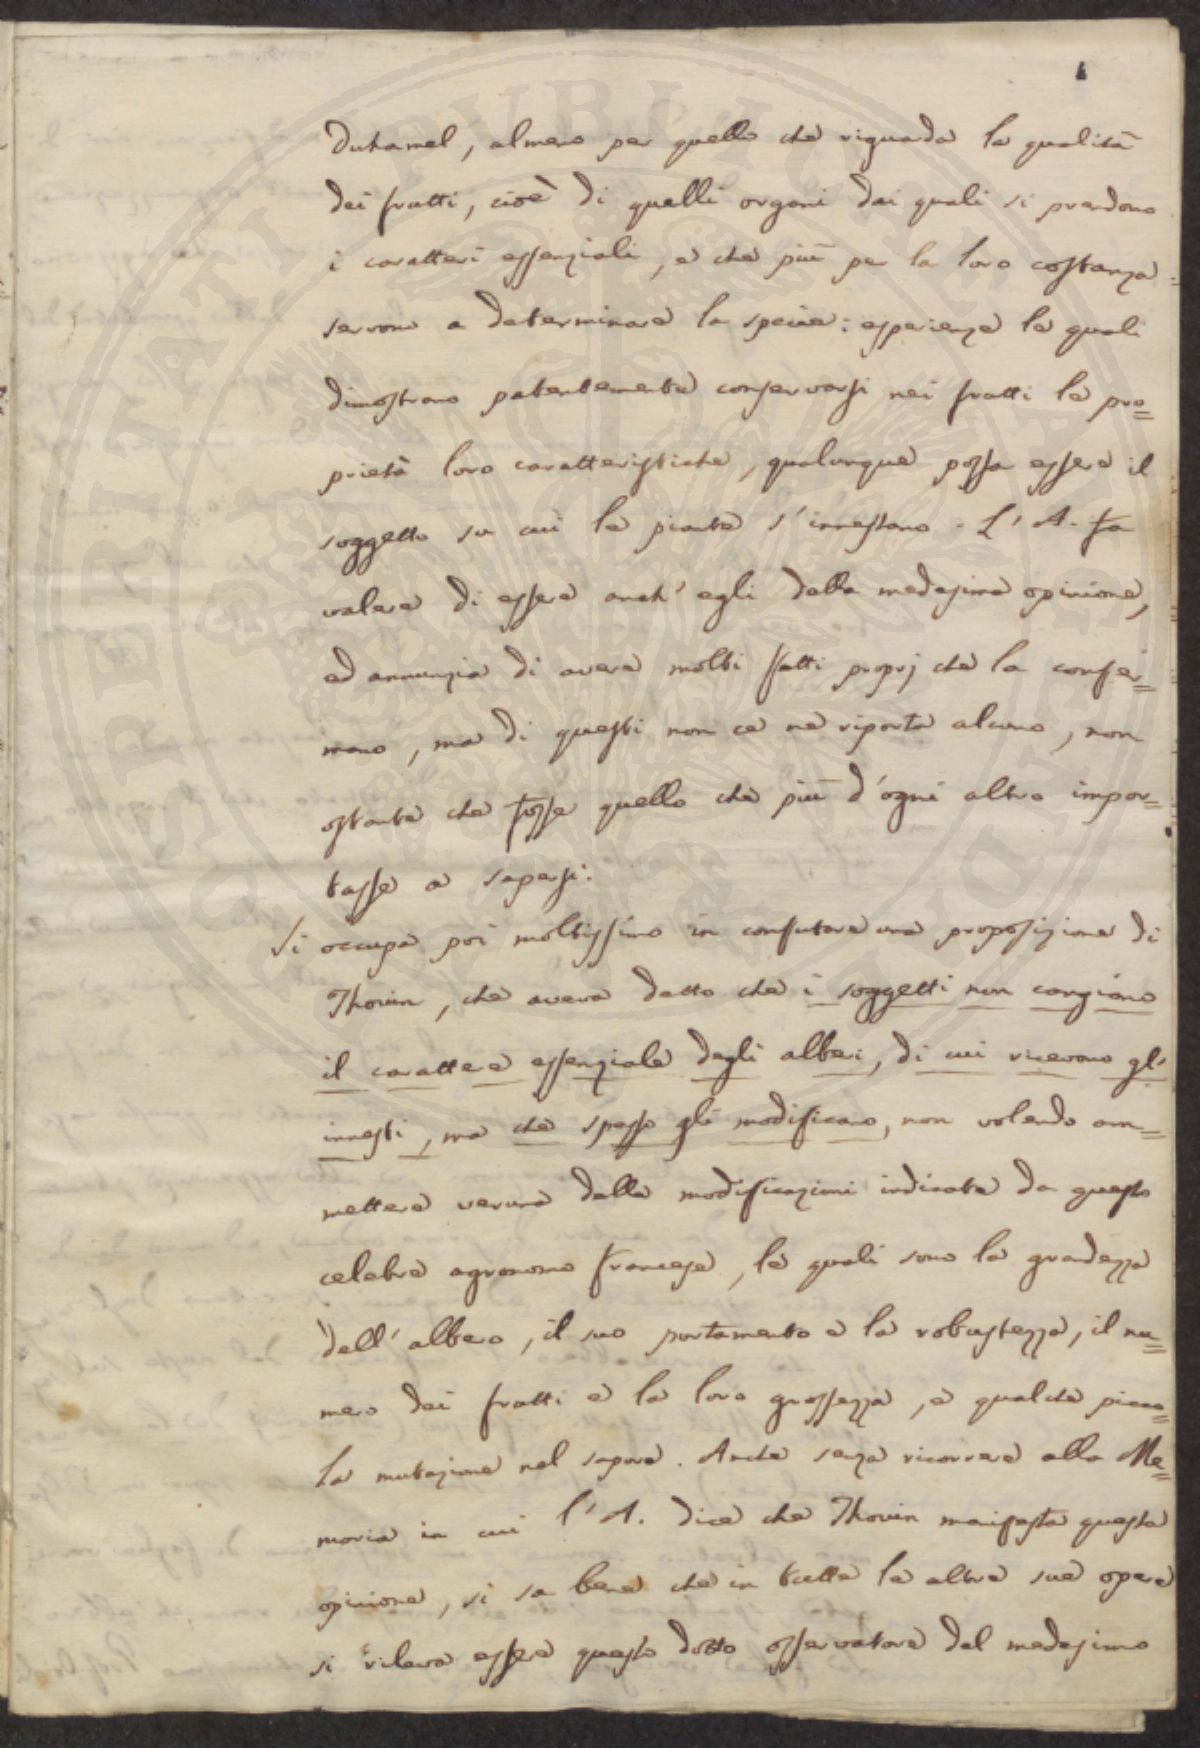 Duhamel, almeno per quello che riguarda la qualità
dei frutti, cioè di quelli organi dai quali si prendono
i caratteri essenziali, e che più per la loro costanza
servono a determinare la specie: esperienze le quali
dimostrano patentemente conservarsi nei frutti le pro=
prietà loro caratteristiche, qualunque possa essere il
soggetto su cui le piante s'innestano. L'A. fa
valere di essere anch'egli della medesima opinione,
ed annunzia di avere molti fatti proprj che la confer=
mano, ma di questi non ce ne riporta alcuno, non
ostante che fosse quello che più d'ogni altro impor=
tasse a sapersi.
Si occupa poi moltissimo in confutare una proposizione di
Thouin, che aveva detto che i soggetti non cangiano
il carattere essenziale degli alberi, di cui ricevono gl'
innesti, ma che spesso gli modificano, non volendo am=
mettere veruna delle modificazioni indicate da questo
celebre agronomo francese, le quali sono la grandezza
dell'albero, il suo portamento e la robustezza, il nu=
mero dei frutti e la loro grossezza, e qualche picco=
la mutazione nel sapore. Anche senza ricorrere alla Me=
moria in cui l'A. dice che Thouin manifesta questa
opinione, si sa bene che in tutte le altre sue opere
si rileva essere questo dotto osservatore del medesimo